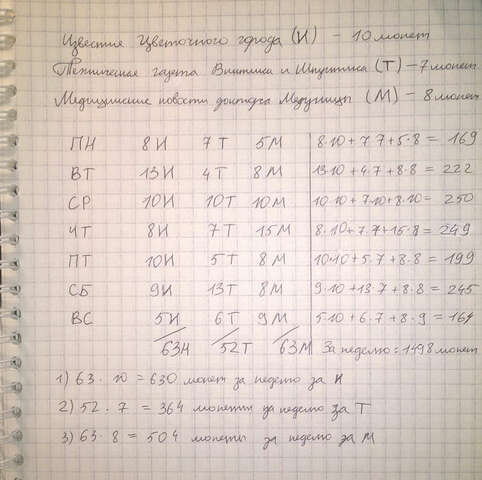 Известие Цветочного города (И) - 10 монет
Техническая газета Винтика и Шпунтика (Т) - 7 монет
Медицинские новости доктора Медуницы (М) - 8 монет
ПН 8И 7Т 5М 8·10+7·7+5·8 = 169
ВТ 13И 4Т 8М 13·10+4·7+8·8 = 222
СР 10И 10Т 10М 10·10+7·10+8·10 = 250
ЧТ 8И 7Т 15М 8·10+7·7+15·8 = 249
ПТ 10И 5Т 8М 10·10+5·7+8·8 = 199
СБ 9И 13Т 8М 9·10+13·7+8·8 = 245
ВС 5И 6Т 9М 5·10+6·7+8·9 = 164
63И 52Т 63М За неделю: 1498 монет
1) 63·10 = 630 монет за неделю за И
2) 52·7 = 364 монеты за неделю за Т
3) 63·8 = 504 монеты за неделю за М